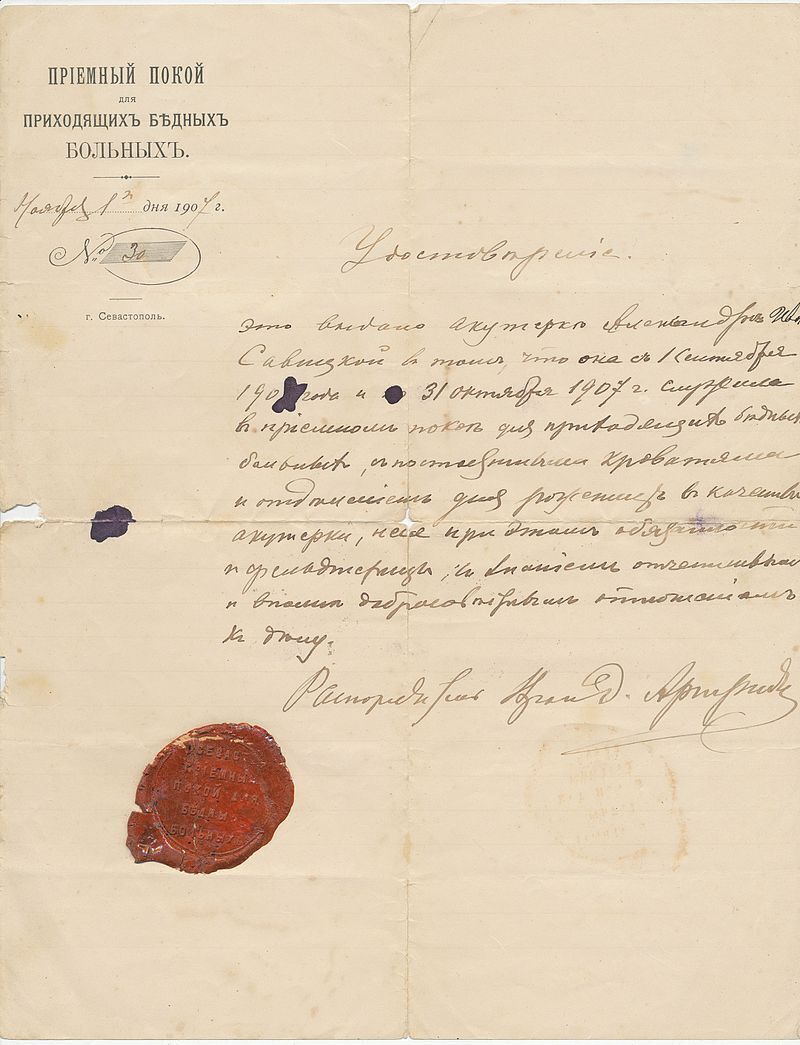 ПРІЕМНЫЙ ПОКОЙ
для
ПРИХОДЯЩИХЪ БѢДНЫХЪ
БОЛЬНЫХЪ.
Ноября 1 дня 1907 г.
№ 30
г. Севастополь.
Удостовѣреніе.
Это выдано акушеркѣ Александрѣ
Савицкой въ томъ, что она съ 1 Сентября
190 года и 31 октября 1907 г. служила
въ пріемномъ покоѣ для приходящихъ бѣдныхъ
больныхъ, съ постоянными кроватями
и отдѣленіемъ для роженицъ въ качествѣ
акушерки, неся при этомъ обязанности
и фельдшерицы, съ знаніемъ
и вполнѣ добросовѣстнымъ отношеніемъ
къ дѣлу.
ПРІЕМНЫЙ
ПОКОЙ ДЛЯ
БѢДНЫ
БОЛЬНЫХ